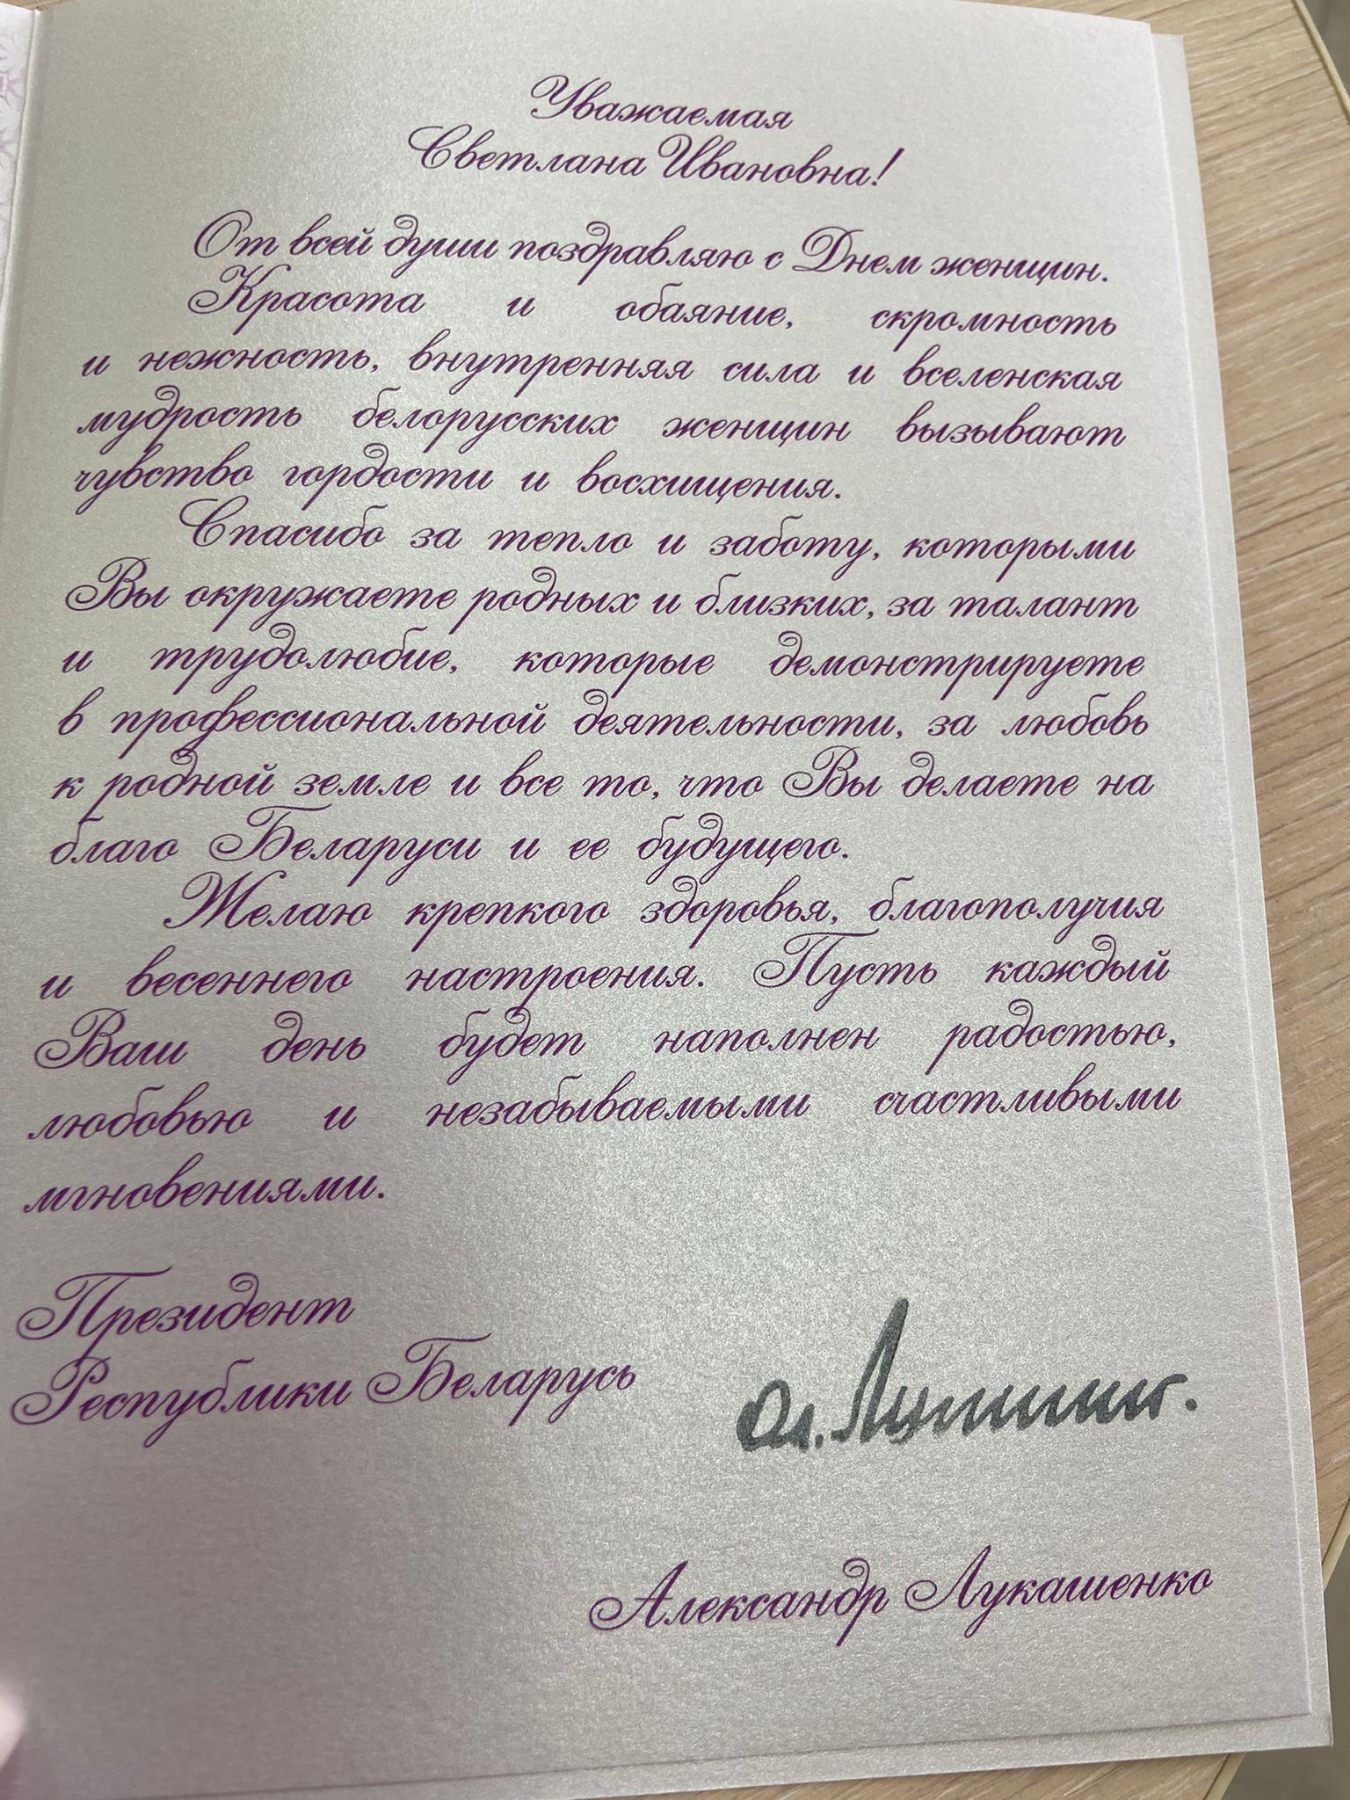 Уважаемая
Светлана Ивановна!
От всей души поздравляю с Днем женщин.
Красота и обаяние, скромность
и нежность, внутренняя сила и вселенская
мудрость белорусских женщин вызывают
чувство гордости и восхищения.
Спасибо за тепло и заботу, которыми
Вы окружаете родных и близких, за талант
и трудолюбие, которые демонстрируете
в профессиональной деятельности, за любовь
к родной земле и все то, что Вы делаете на
благо Беларуси и ее будущего.
Желаю крепкого здоровья, благополучия
и весеннего настроения. Пусть каждый
Ваш день будет наполнен радостью,
любовью и незабываемыми счастливыми
мгновениями.
Президент
Республики Беларусь
Александр Лукашенко